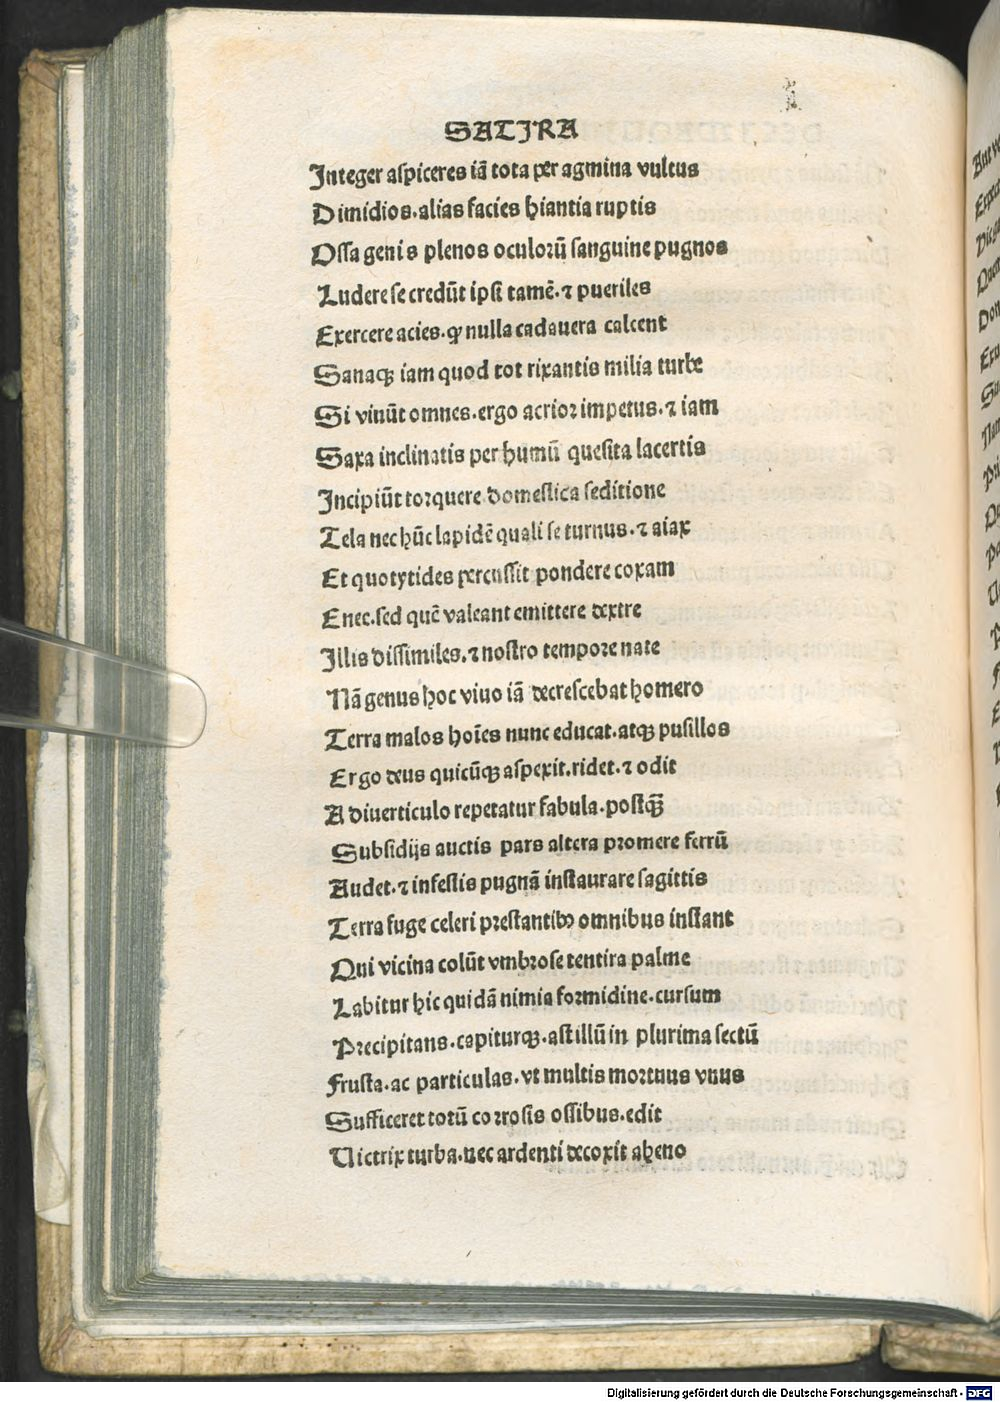 SATIRA
Integer aſpiceres iā tota per agmina vultus
Dimidios. alias facies hiantia ruptis
Oſſa genis plenos oculorū ſanguine pugnos
Ludere ſe credūt ipſi tamē. ⁊ pueriles
Exercere acies. ꝙ nulla cadauera calcent
Sanaqꝫ iam quod tot rixantis milia turbe
Si viuūt omnes. ergo acrior impetus. ⁊ iam
Saxa inclinatis per humū queſita lacertis
Incipiūt torquere domeſtica ſeditione
Tela nec hūc lapidē quali ſe turnus. ⁊ aiax
Et quo tytides percuſſit pondere coxam
Enee. ſed quē valeant emittere dextre
Illis diſſimiles. ⁊ noſtro tempore nate
Nā genus hoc viuo iā decreſcebat homero
Terra malos hoīes nunc educat. atqꝫ puſillos
Ergo deus quicūqꝫ aſpexit. ridet. ⁊ odit
A diuerticulo repetatur fabula. poſtqꝫ̄
Subſidijs auctis pars altera promere ferrū
Audet. ⁊ infeſtis pugnā inſtaurare ſagittis
Terra fuge celeri preſtantibꝫ omnibus inſtant
Qui vicina colūt vmbroſe tentira palme
Labitur hic quidā nimia formidine. curſum
Precipitans. capiturqꝫ. aſt illū in plurima ſectū
Fruſta. ac particulas. vt multis mortuus vnus
Sufficeret totū corroſis oſſibus. edit
Victrix turba. nec ardenti decoxit aheno
Digitalisierung gefördert durch die Deutsche Forschungsgemeinschaft - DFG